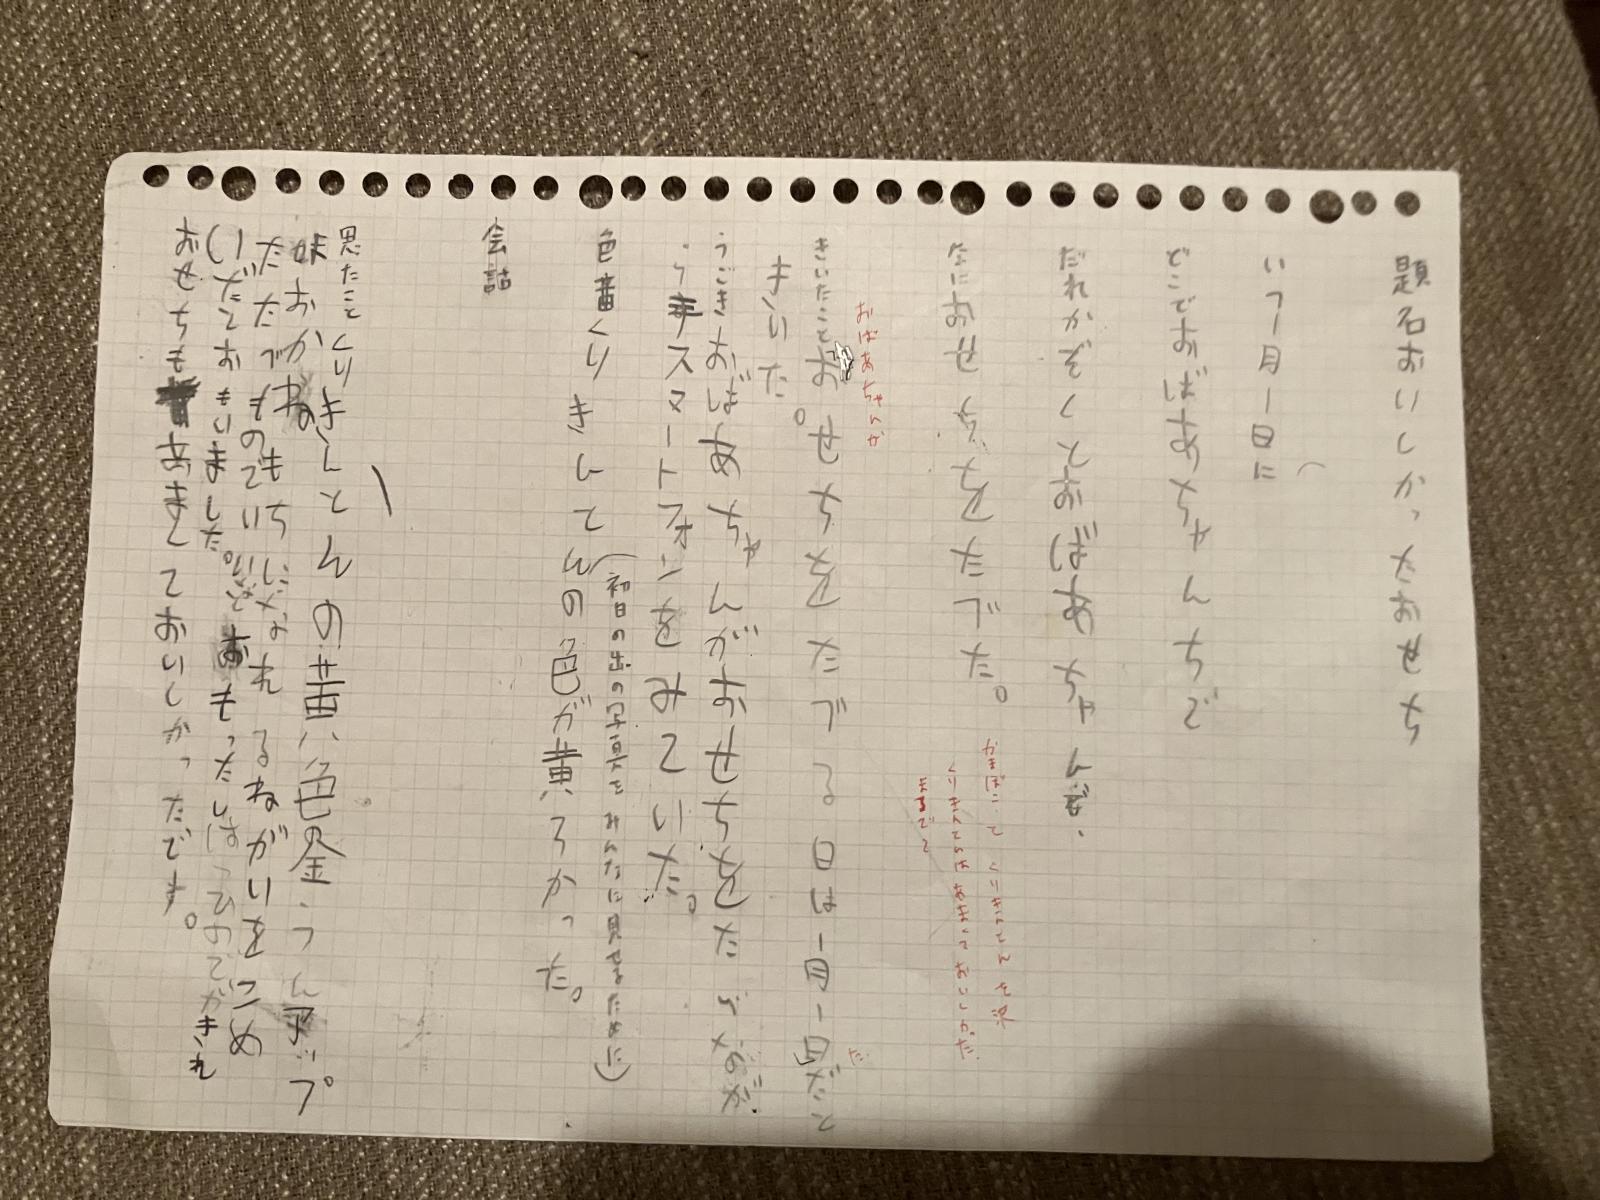 題名おいしかったおせち
いつ一月一日に
どこでおばあちゃんちで
だれかぞくとおばあちゃんと
なにおせちをたべた。
かまぼこって くりきんとん を
くりきんとんは あまくて おいしかった。
まるで
おばあちゃんが
きいたことおせちをたべる日は一月一日だと
だ
きいた。
うごきおばあちゃんがおせちをたべながら
スマートフォンをみていた。
(初日の出の写真を みんなに見せるために)
色黄くりきんとんの色が黄ろかった。
会話
思たことくりきんとんの黄色金うんアップ
妹おかねもちになれるねがいをこめ
たたべものでいい
いだとおもいました。おもったしはつひのでがきれ
おせちもあまくておいしかったです。